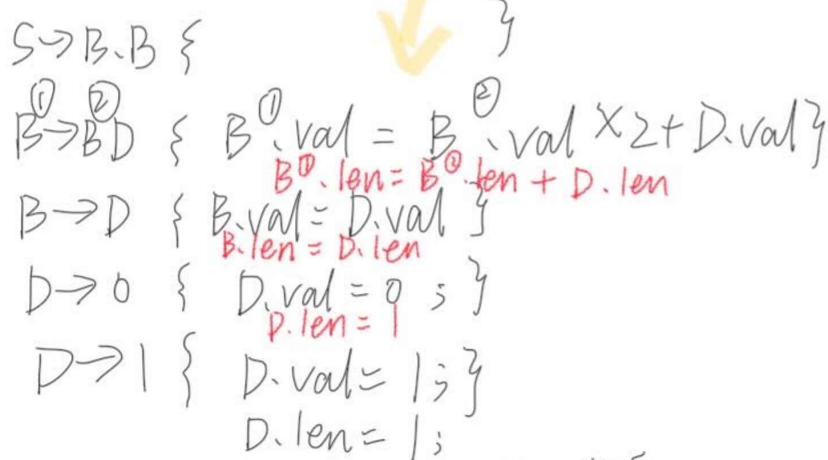 S→B.B { }
B①→B②D { B①.val = B②.val ×2+ D.val}
B①.len = B②.len + D.len
B→D { B.val = D.val }
B.len = D.len
D→0 { D.val = 0 ; }
D.len = 1
D→1 { D.val = 1 ; }
D.len = 1 ;